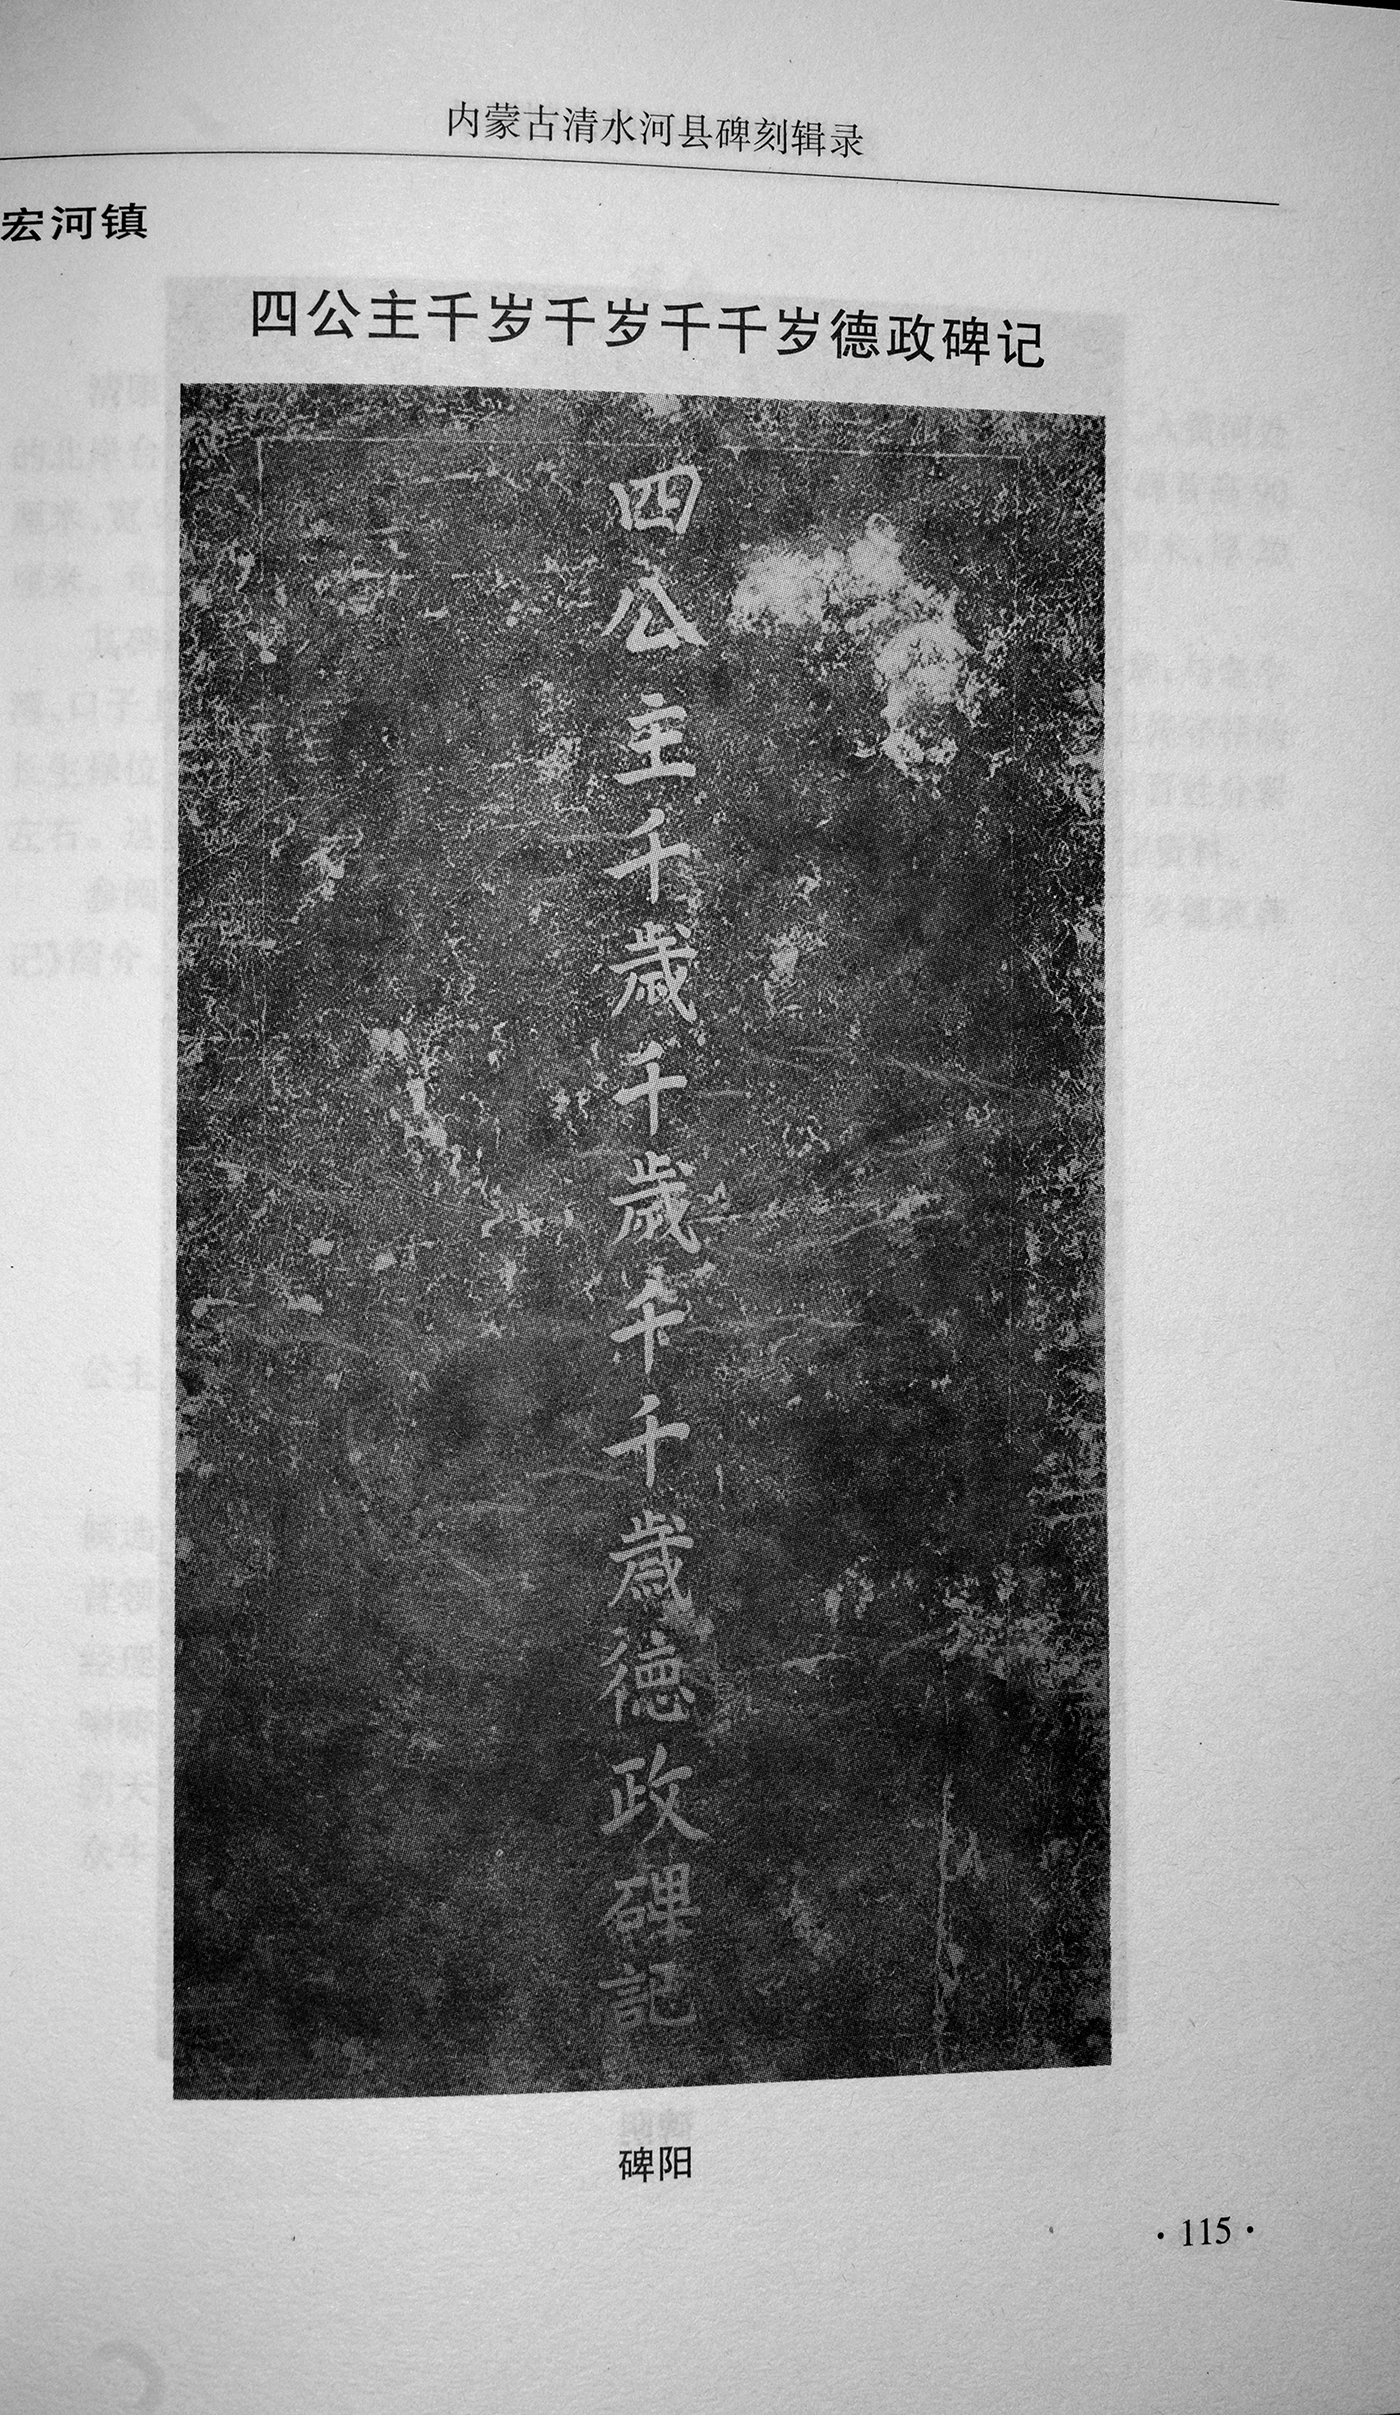 内蒙古清水河县碑刻辑录
宏河镇
四公主千岁千岁千千岁德政碑记
四公主千歳千歳千千歳德政碑記
碑阳
·115·